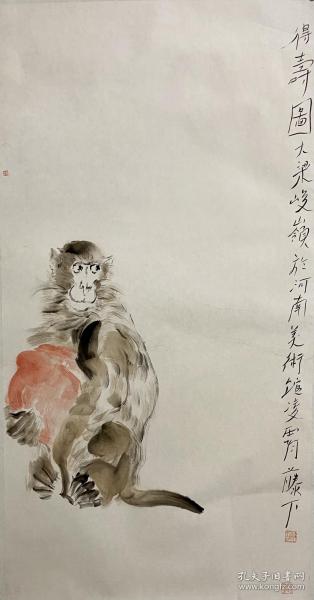 得壽圖大梁峻嶺於河南美術館凌霄藤下
孔夫子旧书网